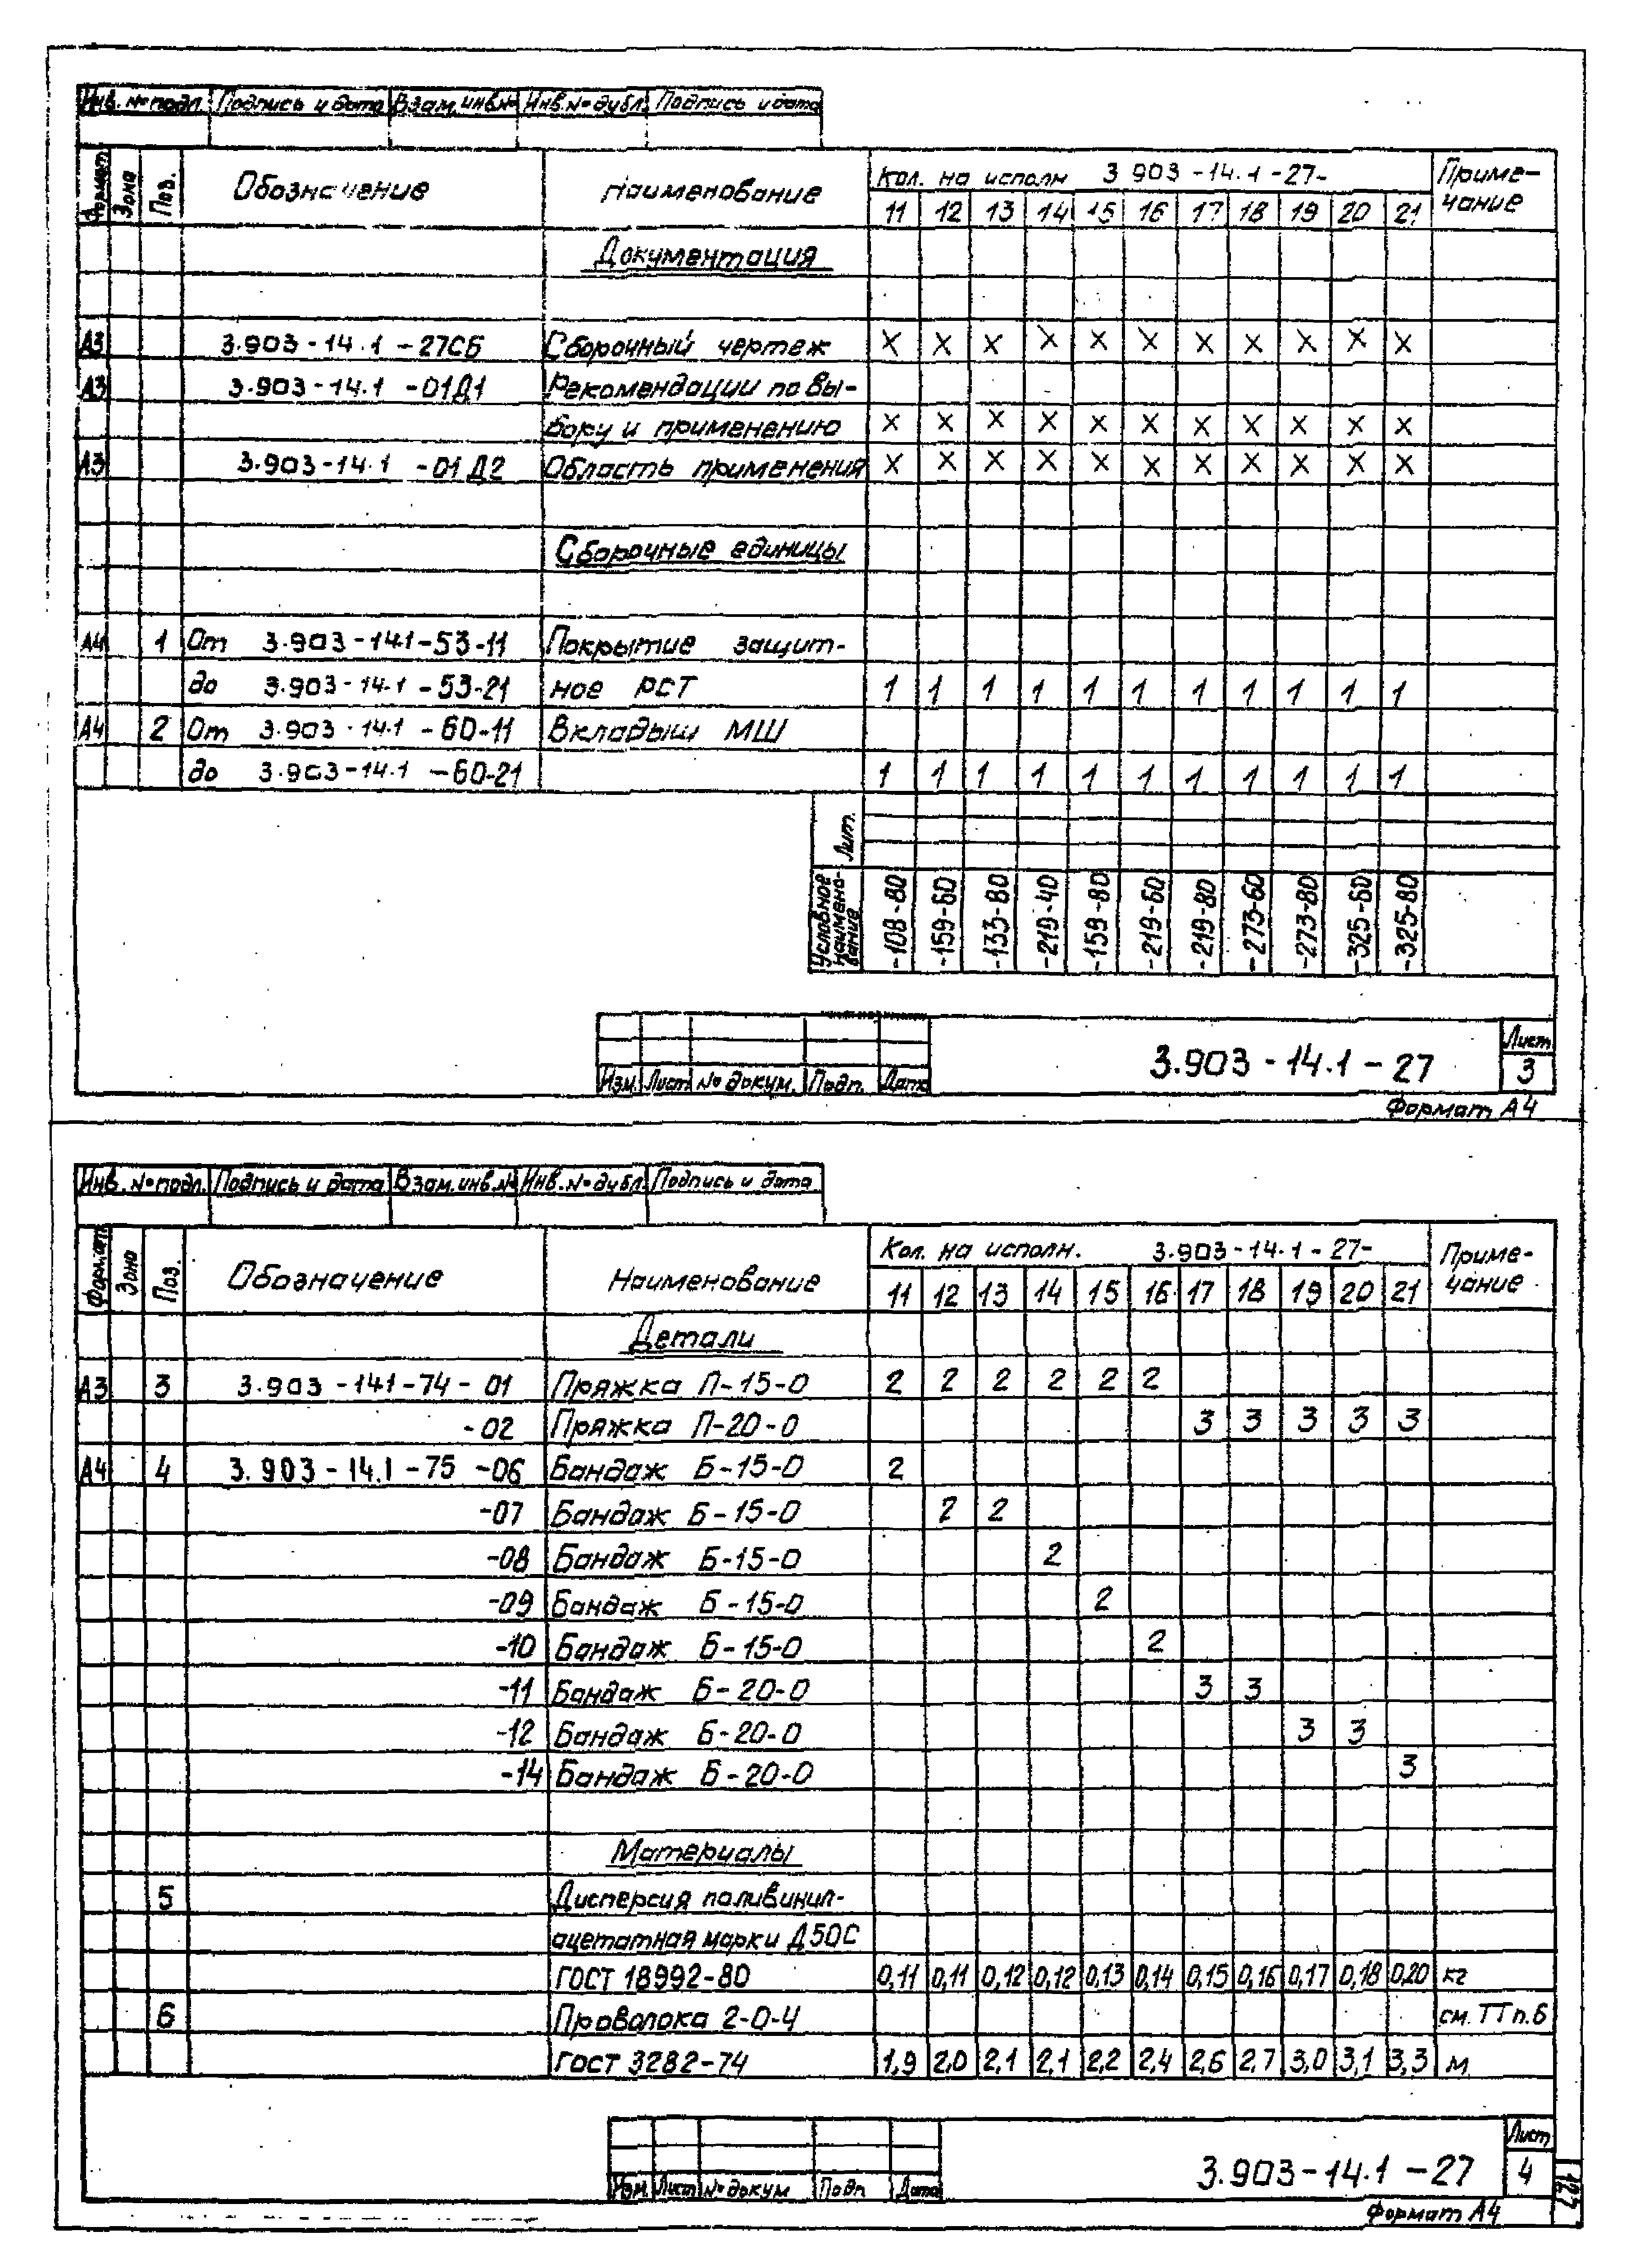 Инв. № подл. Подпись и дата Взам. инв. № Инв. № дубл. Подпись и дата
Формат Зона Поз. Обозначение Наименование Кол. на исполн 3 903-14.1-27- Приме-
чание
11 12 13 14 15 16 17 18 19 20 21
Документация
А3 3.903-14.1-27СБ Сборочный чертеж X X X X X X X X X X X
А3 3.903-14.1-01Д1 Рекомендации по вы-
бору и применению X X X X X X X X X X X
А3 3.903-14.1-01Д2 Область применения X X X X X X X X X X X
Сборочные единицы
А4 1 От 3.903-14.1-53-11 Покрытие защит-
до 3.903-14.1-53-21 ное РСТ 1 1 1 1 1 1 1 1 1 1 1
А4 2 От 3.903-14.1-60-11 Вкладыш МШ
до 3.903-14.1-60-21 1 1 1 1 1 1 1 1 1 1 1
Лит.
Условное наимено-вание -108-80 -159-60 -133-80 -219-40 -159-80 -219-60 -219-80 -273-60 -273-80 -325-60 -325-80
Изм. Лист № докум. Подп. Дата
3.903-14.1-27
Лист
3
Формат А4
Инв. № подл. Подпись и дата Взам. инв. № Инв. № дубл. Подпись и дата
Формат Зона Поз. Обозначение Наименование Кол. на исполн. 3.903-14.1-27- Приме-
чание
11 12 13 14 15 16 17 18 19 20 21
Детали
А3 3 3.903-141-74-01 Пряжка П-15-0 2 2 2 2 2 2
-02 Пряжка П-20-0 3 3 3 3 3
А4 4 3.903-14.1-75-06 Бандаж Б-15-0 2
-07 Бандаж Б-15-0 2 2
-08 Бандаж Б-15-0 2
-09 Бандаж Б-15-0 2
-10 Бандаж Б-15-0 2
-11 Бандаж Б-20-0 3 3
-12 Бандаж Б-20-0 3 3
-14 Бандаж Б-20-0 3
Материалы
5 Дисперсия поливинил-
ацетатная марки Д50С
ГОСТ 18992-80 0,11 0,11 0,12 0,12 0,13 0,14 0,15 0,16 0,17 0,18 0,20 кг
6 Проволока 2-0-4 см. ТТ п.6
ГОСТ 3282-74 1,9 2,0 2,1 2,1 2,2 2,4 2,6 2,7 3,0 3,1 3,3 м
Изм. Лист № докум Подп Дата
3.903-14.1-27
Лист
4
Формат А4